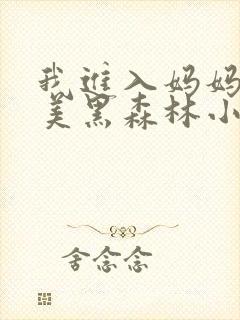 我进入妈妈
美黑森林小
舍念念